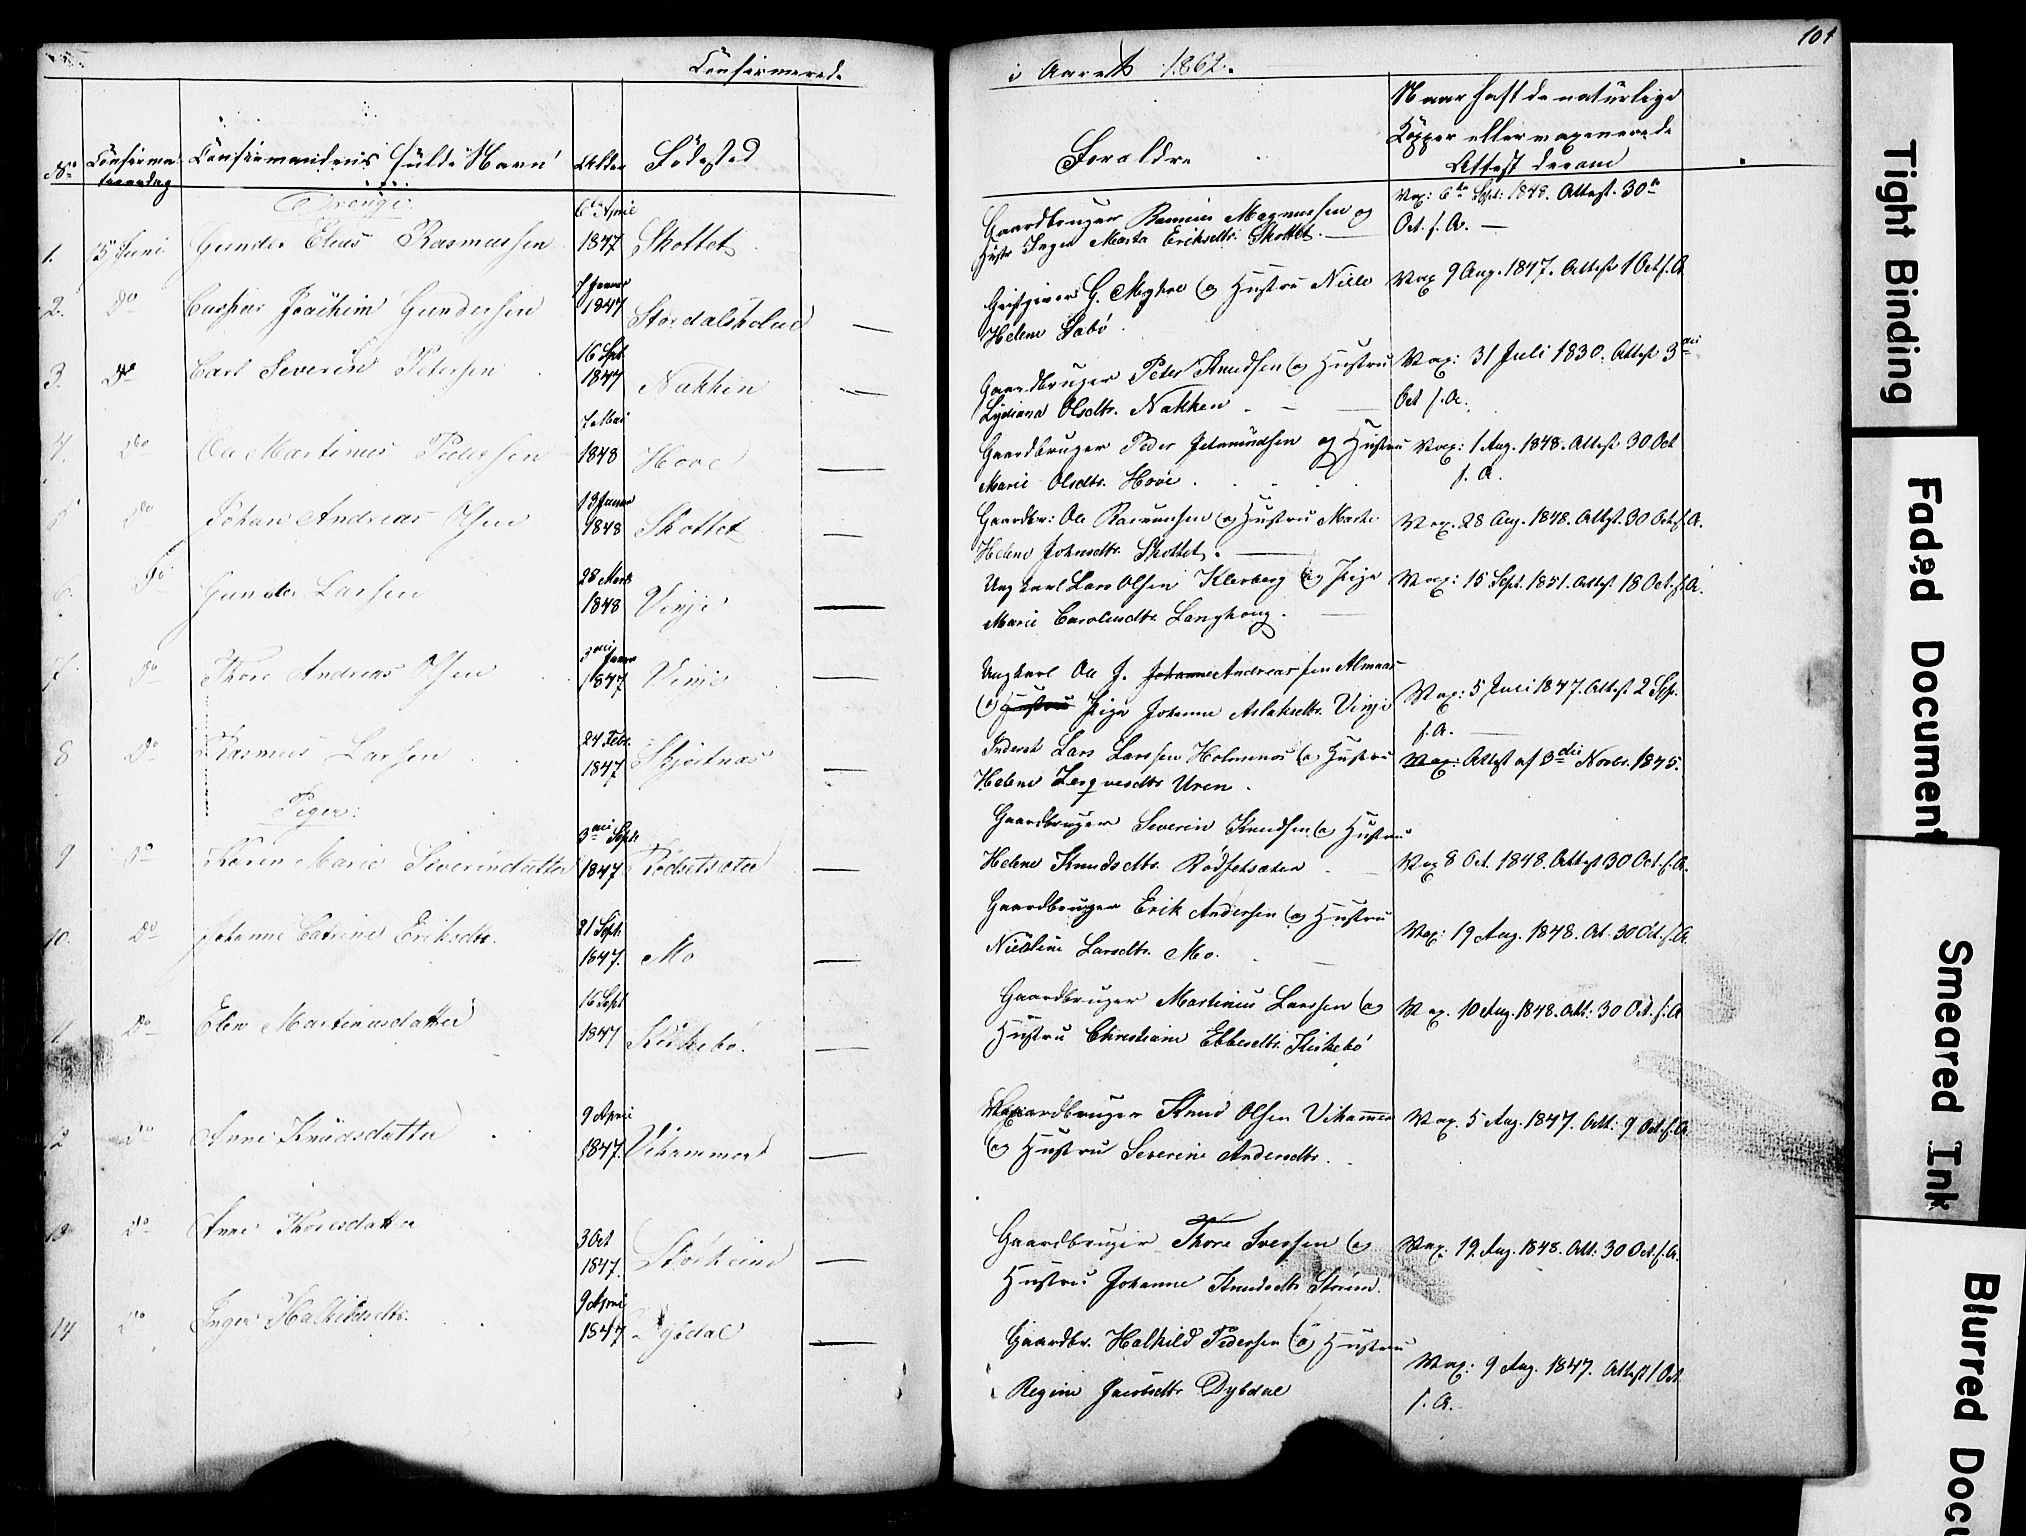 Confirmerede
i Aaret 1862.
101
No
Confirma-
tionsdag
Confirmandens fulde Navn
Alder
Fødested
Forældre
Naar haft de naturlige
Kopper eller vaxenerede
Attest derom
Drenge.
1.
15 Juni
Gunder Elias Rasmussen
6te April
1847
Skottet
Gaardbruger Rasmus Magnussen og
Hustr Inger Marta Eriksdtr. Skottet.
Vax: 6te Spt: 1848. Attest. 30te
Oct. s. A.
2.
Do
Caspar Joachim Gundersen
7 Januar
1847
Stordalsholm
Gjestgiver G. Myhre og Hustru Nille
Helene Sabø.
Vax 9 Aug. 1847. Attest 1 Oct s. A
3.
Do
Carl Severin Petersen
16 Spt.
1847
Nakken
Gaardbruger Peter Knudsen og Hustru
Lydiana Olsdtr. Nakken.
Vax: 31 Juli 1830. Attest 3die
Oct s. A.
4.
Do
Ole Martinus Pedersen
7 Mai
1848
Hove
Gaardbruger Peder Petersen og Hustru
Marie Olsdtr. Hove.
Vax: 1 Aug. 1848. Attest 30 Oct
s. A.
5
Do
Johan Andreas Olsen
13 Januar
1848
Skottet
Gaardbr: Ole Rasmussen og Hustru Marte
Helene Johnsdtr. Skottet.
Vax. 28 Aug. 1848. Attest. 30 Oct. s. A.
6.
Do
Gunder Larsen
28 Marts
1848
Vinje
Ungkarl Lars Olsen Kleeberg og Pige
Marie Carolusdtr. Langhoug.
Vax: 15 Sept. 1851. Attest 18 Oct. s. A.
7.
Do
Thore Andreas Olsen
3die Januar
1847
Vinje
Ungkarl Ole J. Johanne Andreassen Almaas
og Hustru Pige Johanne Aslaksdtr. Vinje
Vax: 5 Juli 1847. Attest 2 Spt.
s. A.
8
Do
Rasmus Larsen
24 Febr.
1847
Skjortnes
Inderst Lars Larssen Holmenes og Hustru
Helene Bergvesdtr Uren.
Vax: Attest af 3die Novbr. 1845.
Piger:
9
Do
Karen Marie Severinsdatter
3die Sept.
1847
Rødsetsæter
Gaardbruger Severin Knudsen og Hustru
Helene Knudsdtr. Rødsetsæter
Vax 8 Oct. 1848. Attest 30 Oct. s. A.
10.
Do
Johanne Catrine Eriksdtr.
21 Sept.
1847.
Mo
Gaardbruger Erik Andersen og Hustru
Nicoline Larsdtr. Mo.
Vax: 19 Aug. 1848. At. 30 Oct. s. A.
11
Do
Elen Martinusdatter
16 Sept
1847
Kirkebø.
Gaardbruger Martinus Larssen og
Hustru Christiane Ebbesdtr. Kirkebø
Vax. 10 Aug. 1848. Att: 30 Oct. s. A
12
Do
Anne Knudsdatter
9 April
1847.
Vihammer
Gaardbruger Knud Olsen Vihammer
og Hustru Severine Andersdtr.
Vax. 5 Aug. 1847. Att: 9 Oct. s. A
13
Do
Anne Thoresdatter
3 Oct
1847.
Storheim
Gaardbruger Thore Iversen og
Hustru Johanne Knudsdtr Storeim.
Vax: 19. Aug. 1848. Att: 30 Oct. s. A.
14
Do
Inger Halkildsdtr.
9 April
1847
Dybdal
Gaardbr. Halkild Pedersen og Hustru
Regine Jacobsdtr Dybdal
Vax: 9 Aug. 1847. Attest 1 Oct
s. A.
Tight Binding
Faded Document
Smeared Ink
Blurred Docu